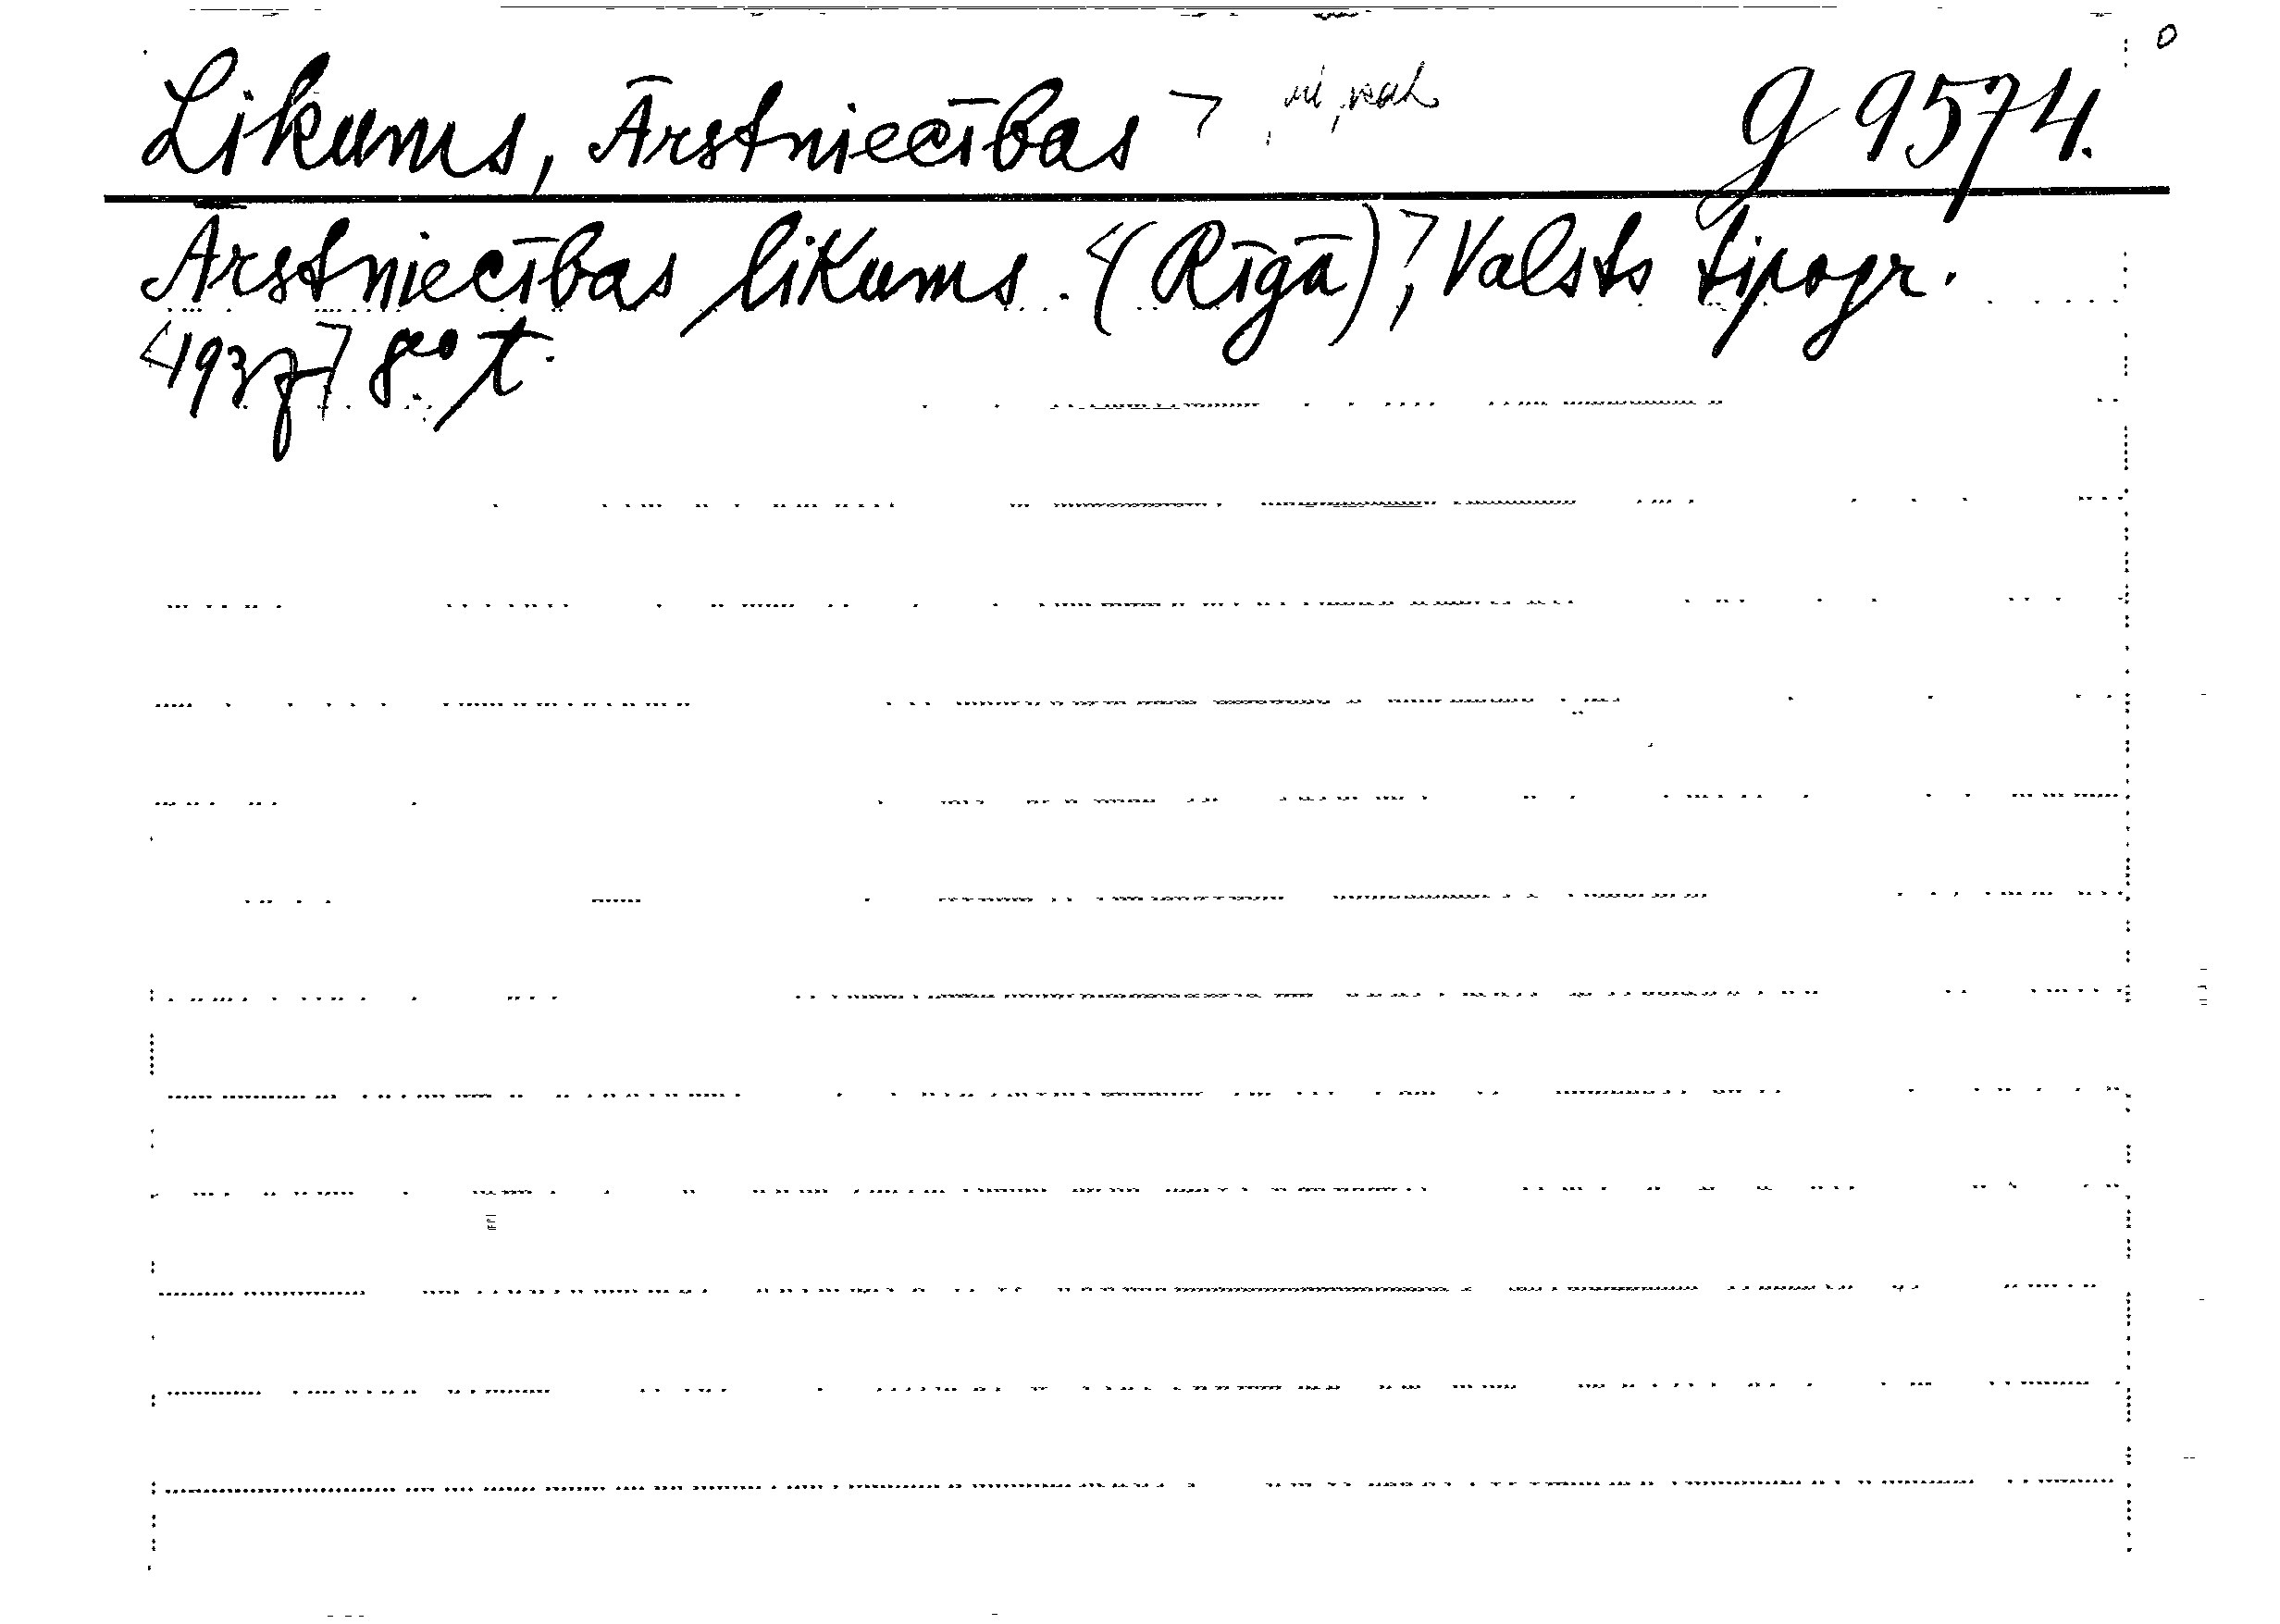 Likums, Ārstniecības > g 9574.
Ārstniecības likums. <(Rīgā)>, Valsts tipogr.
<1937> 8° t.